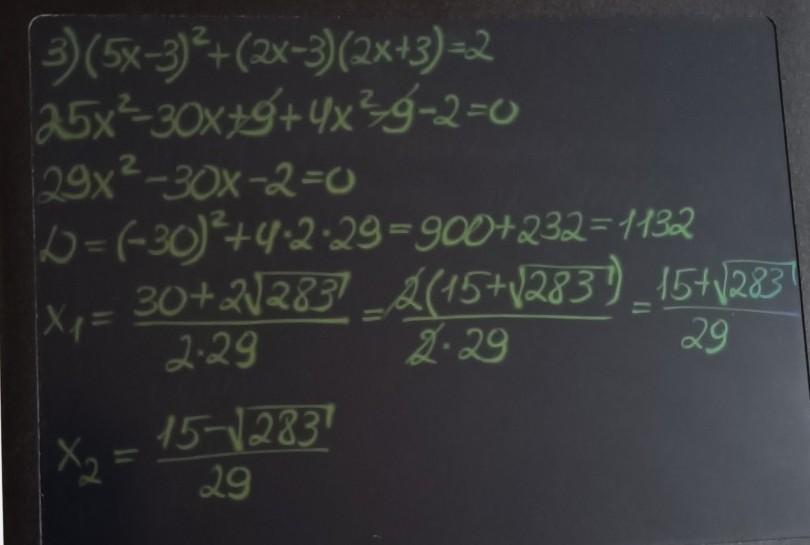 3) (5x-3)²+(2x-3)(2x+3)=2
25x²-30x+9+4x²-9-2=0
29x²-30x-2=0
D=(-30)²+4·2·29=900+232=1132
x₁= (30+2√283)/(2·29) = (2(15+√283))/(2·29) = (15+√283)/29
x₂= (15-√283)/29